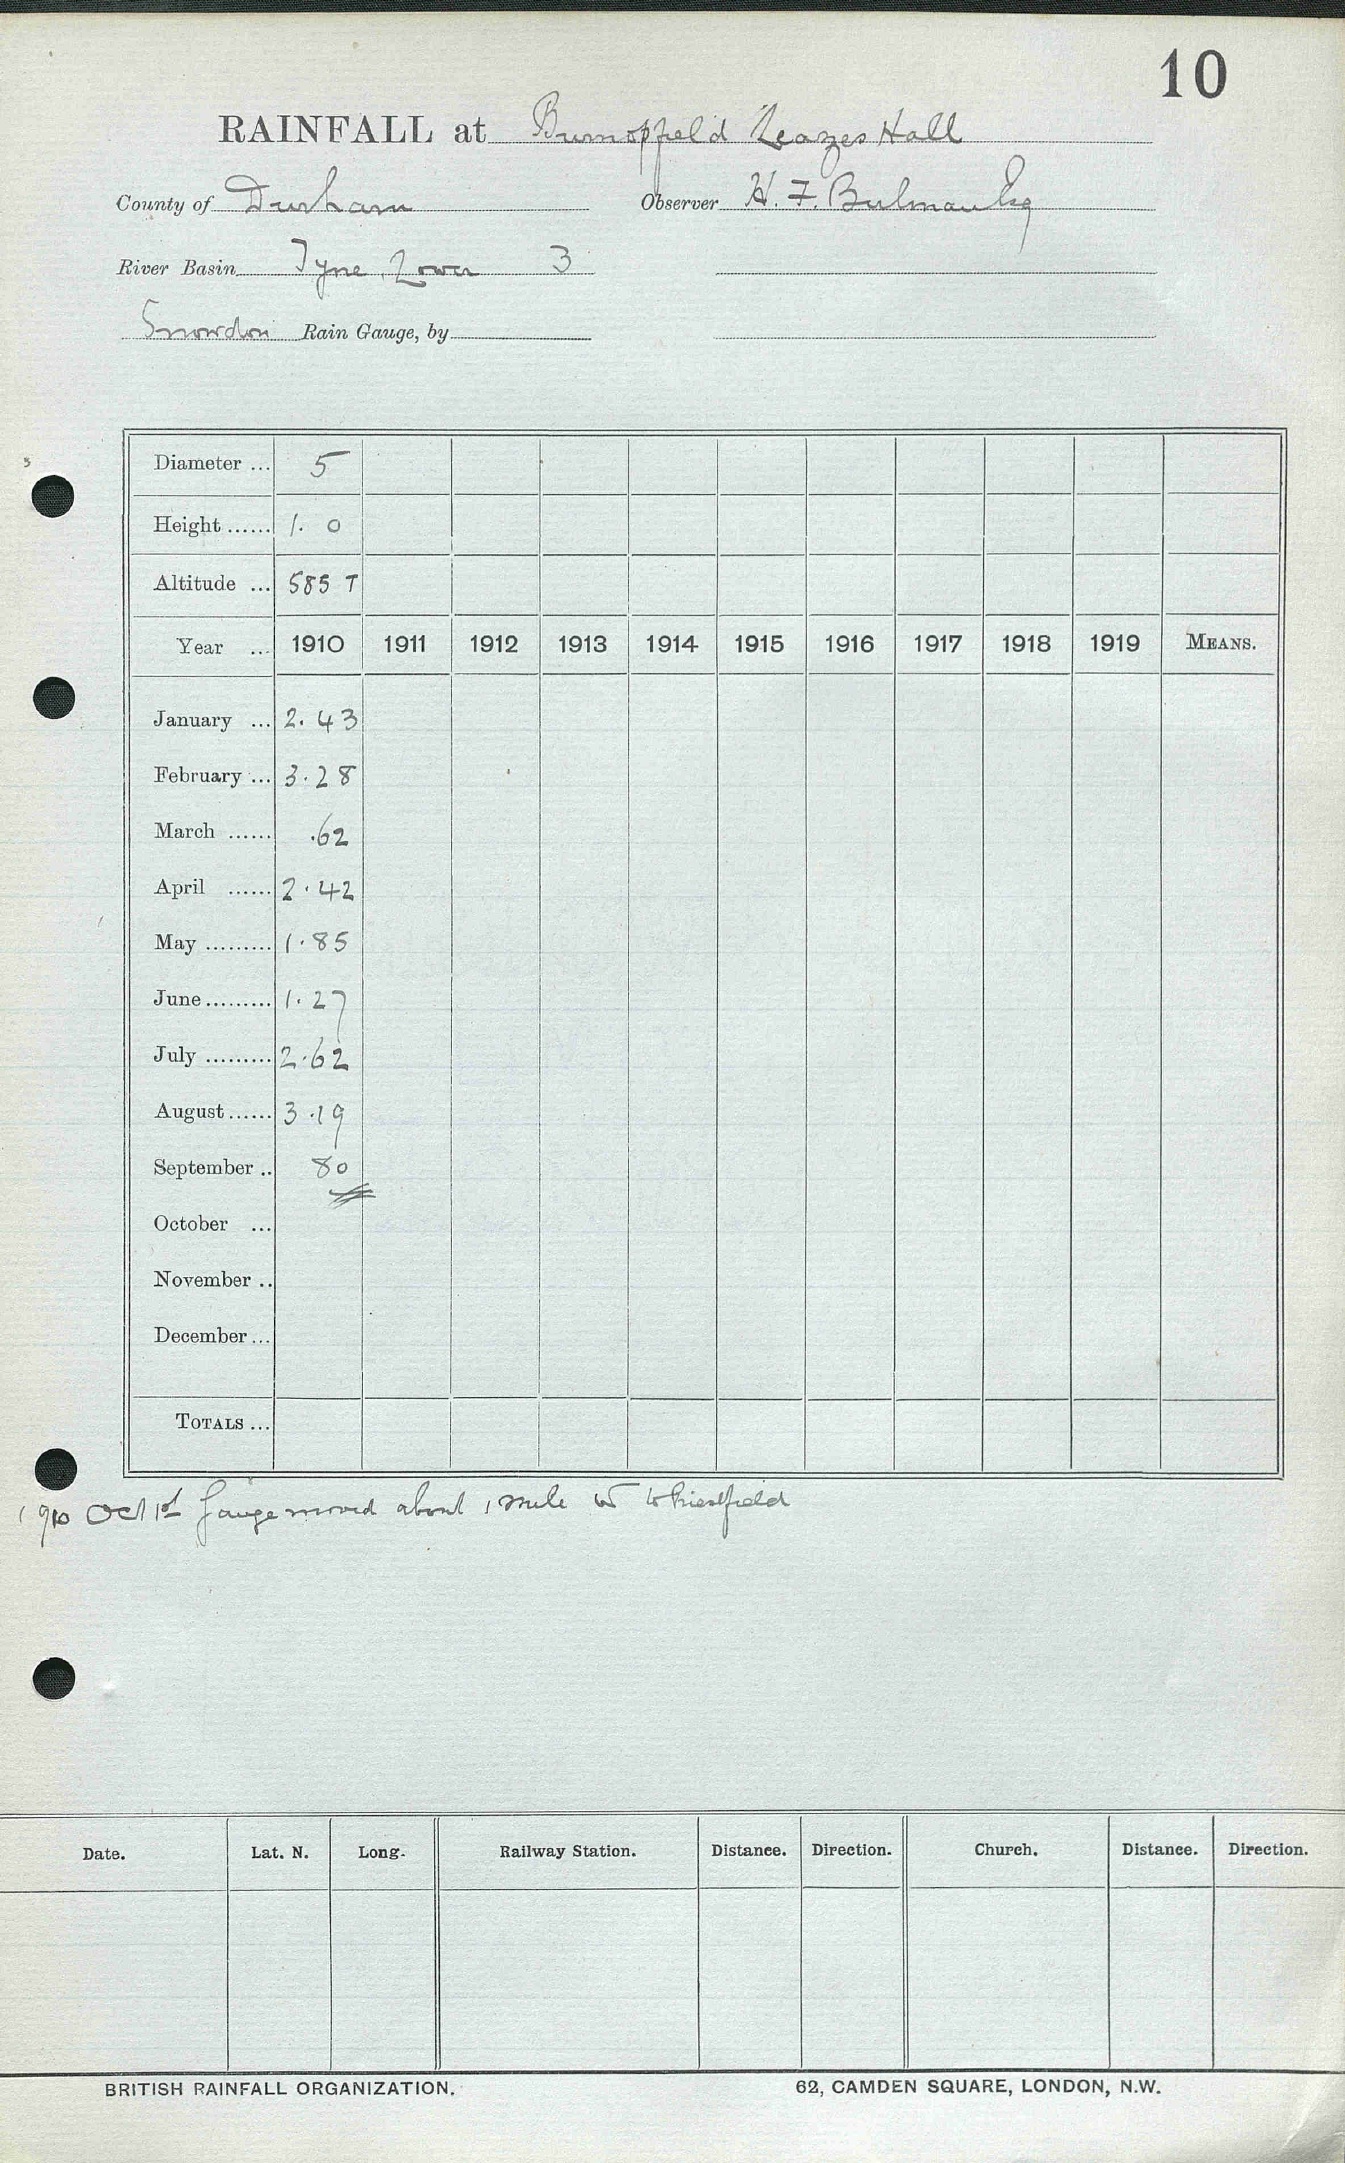 10
RAINFALL at Burnopfield Leazes Hall
County of Durham Observer H. F. Bulman Esq
River Basin Tyne, Lower 3
Snowdon Rain Gauge, by
Diameter ... 5
Height ...... 1. 0
Altitude ... 585 T
Year ... 1910 1911 1912 1913 1914 1915 1916 1917 1918 1919 MEANS.
January ... 2.43
February ... 3.28
March ...... .62
April ...... 2.42
May ......... 1.85
June ......... 1.27
July ......... 2.62
August ...... 3.19
September .. 80
October ...
November ..
December ...
TOTALS ...
1910 Oct 1st Gauge moved about 1 mile W
Date. Lat. N. Long. Railway Station. Distance. Direction. Church. Distance. Direction.
BRITISH RAINFALL ORGANIZATION. 62, CAMDEN SQUARE, LONDON, N.W.